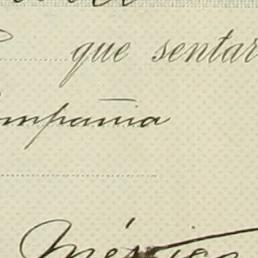 que sentar
ompañia
México